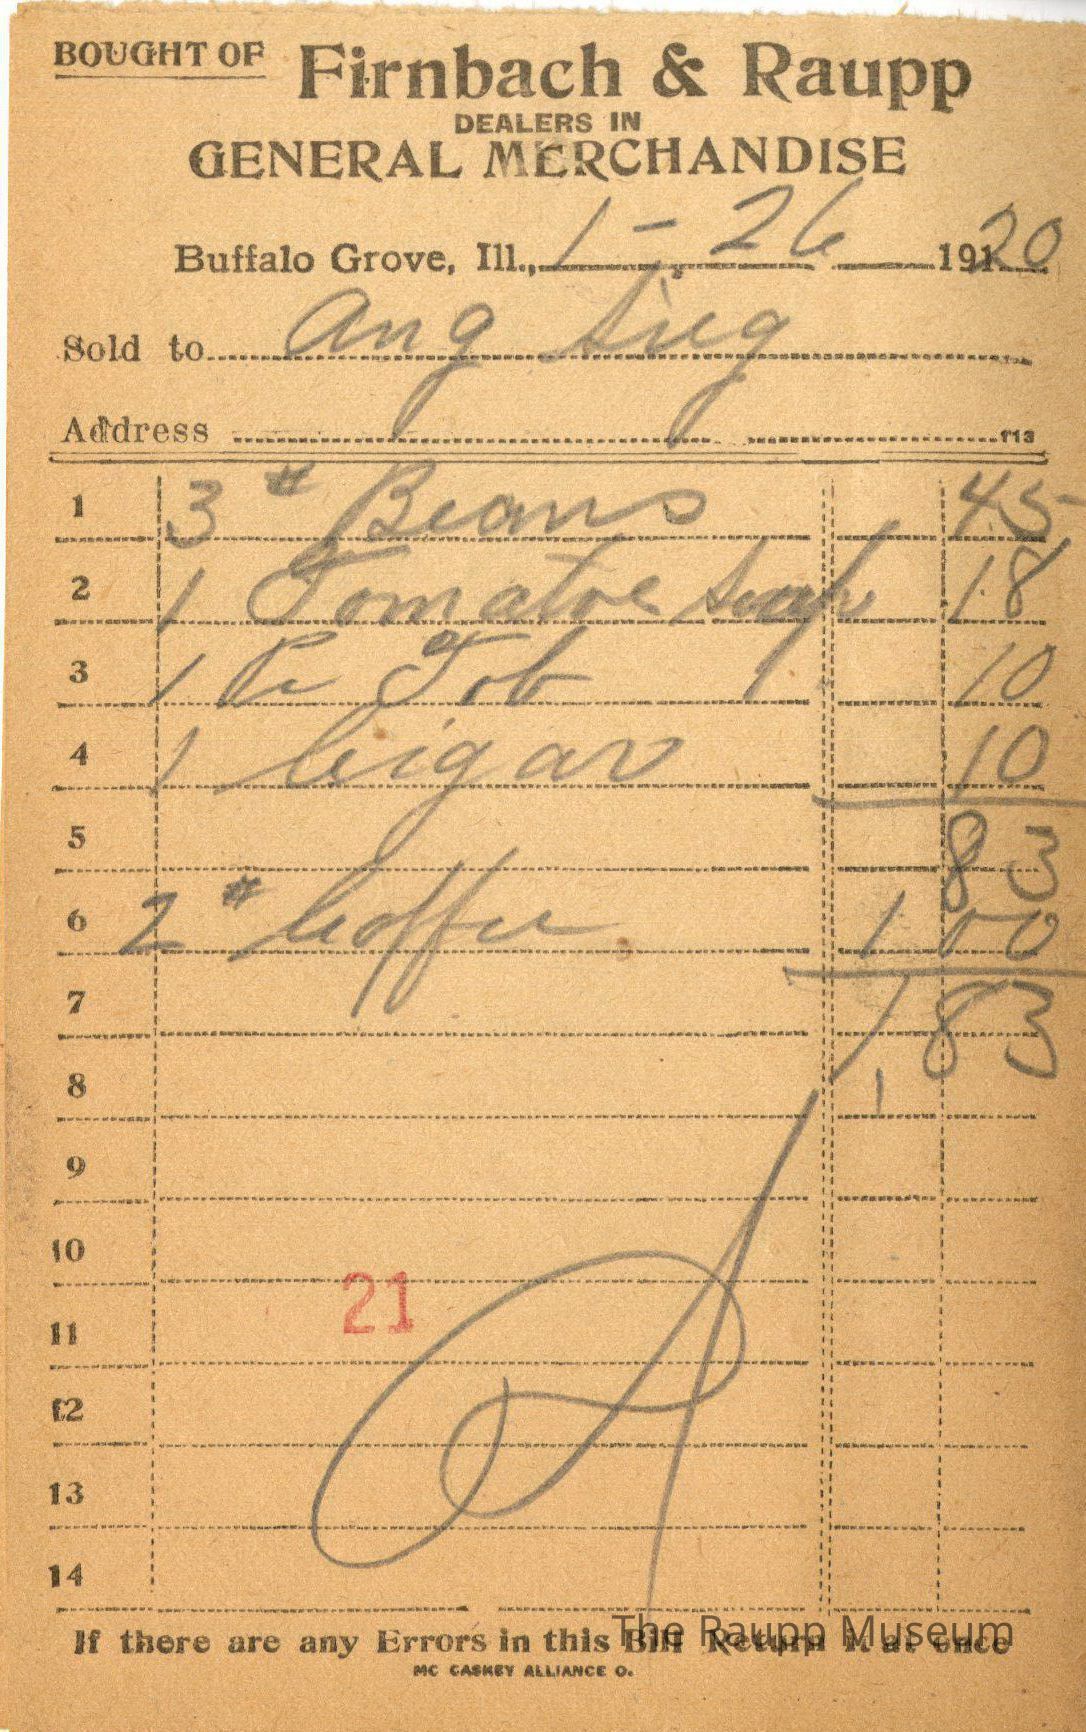 BOUGHT OF Firnbach & Raupp
DEALERS IN
GENERAL MERCHANDISE
Buffalo Grove, Ill., 1 - 26 191 20
Sold to Aug Sieg
Address 113
1 3 # Beans 45
2 1 Tomatoe Soup 18
3 1 Pc Tob 10
4 1 Cigar 10
5 83
6 2 # Coffee 1 00
7 1 83
8
9
10
21
11
12
13
14
If there are any Errors in this Bill Return it at once
The Raupp Museum
MC CASKEY ALLIANCE O.